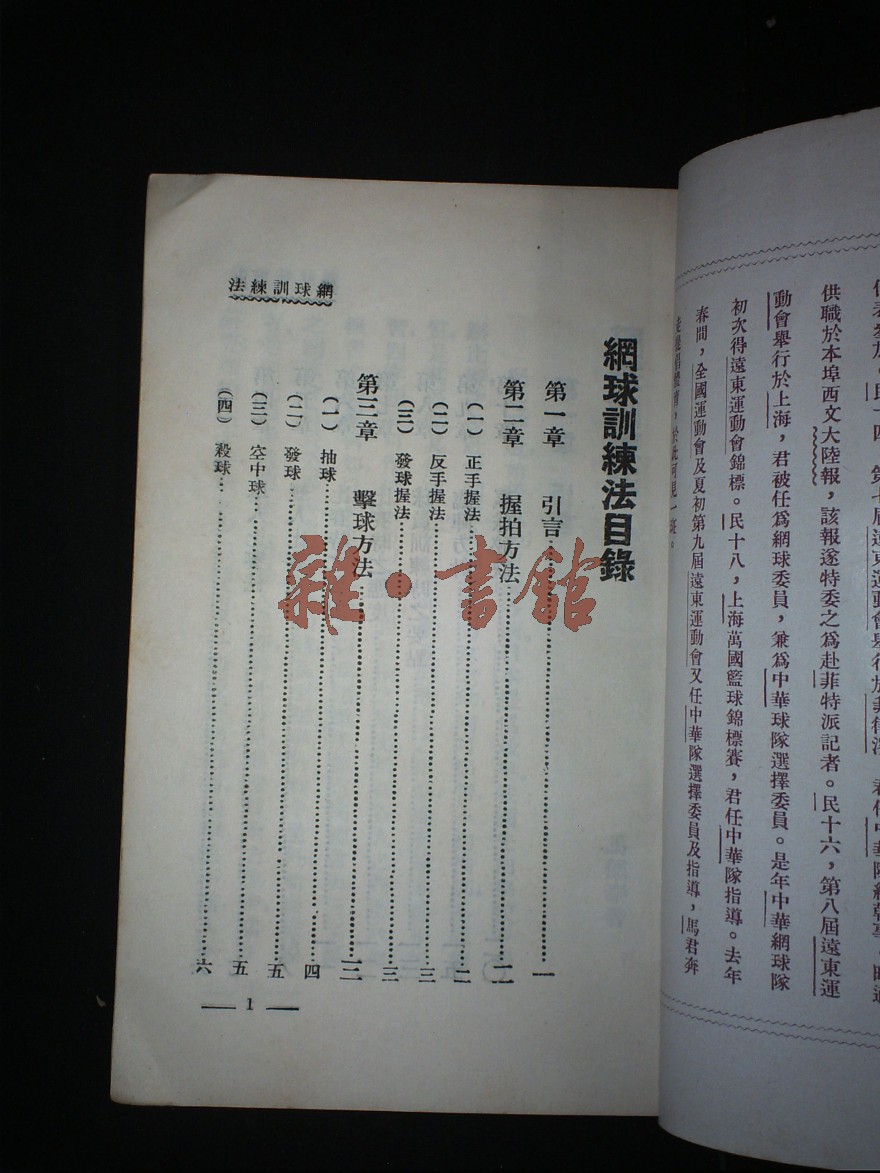 供職於本埠西文大陸報，該報遂特委之為赴菲特派記者。民十六，第八屆遠東運
動會舉行於上海，君被任為網球委員，兼為中華球隊選擇委員。是年中華網球隊
初次得遠東運動會錦標。民十八，上海萬國籃球錦標賽，君任中華隊指導。去年
春間，全國運動會及夏初第九屆遠東運動會又任中華隊選擇委員及指導，馬君奔
走提倡體育，於此可見一斑。
網球訓練法目錄
第一章 引言 一
第二章 握拍方法 二
(一) 正手握法 二
(二) 反手握法 三
(三) 發球握法 三
第三章 擊球方法 三
(一) 抽球 四
(二) 發球 五
(三) 空中球 五
(四) 殺球 六
網球訓練法
1
雜·書館